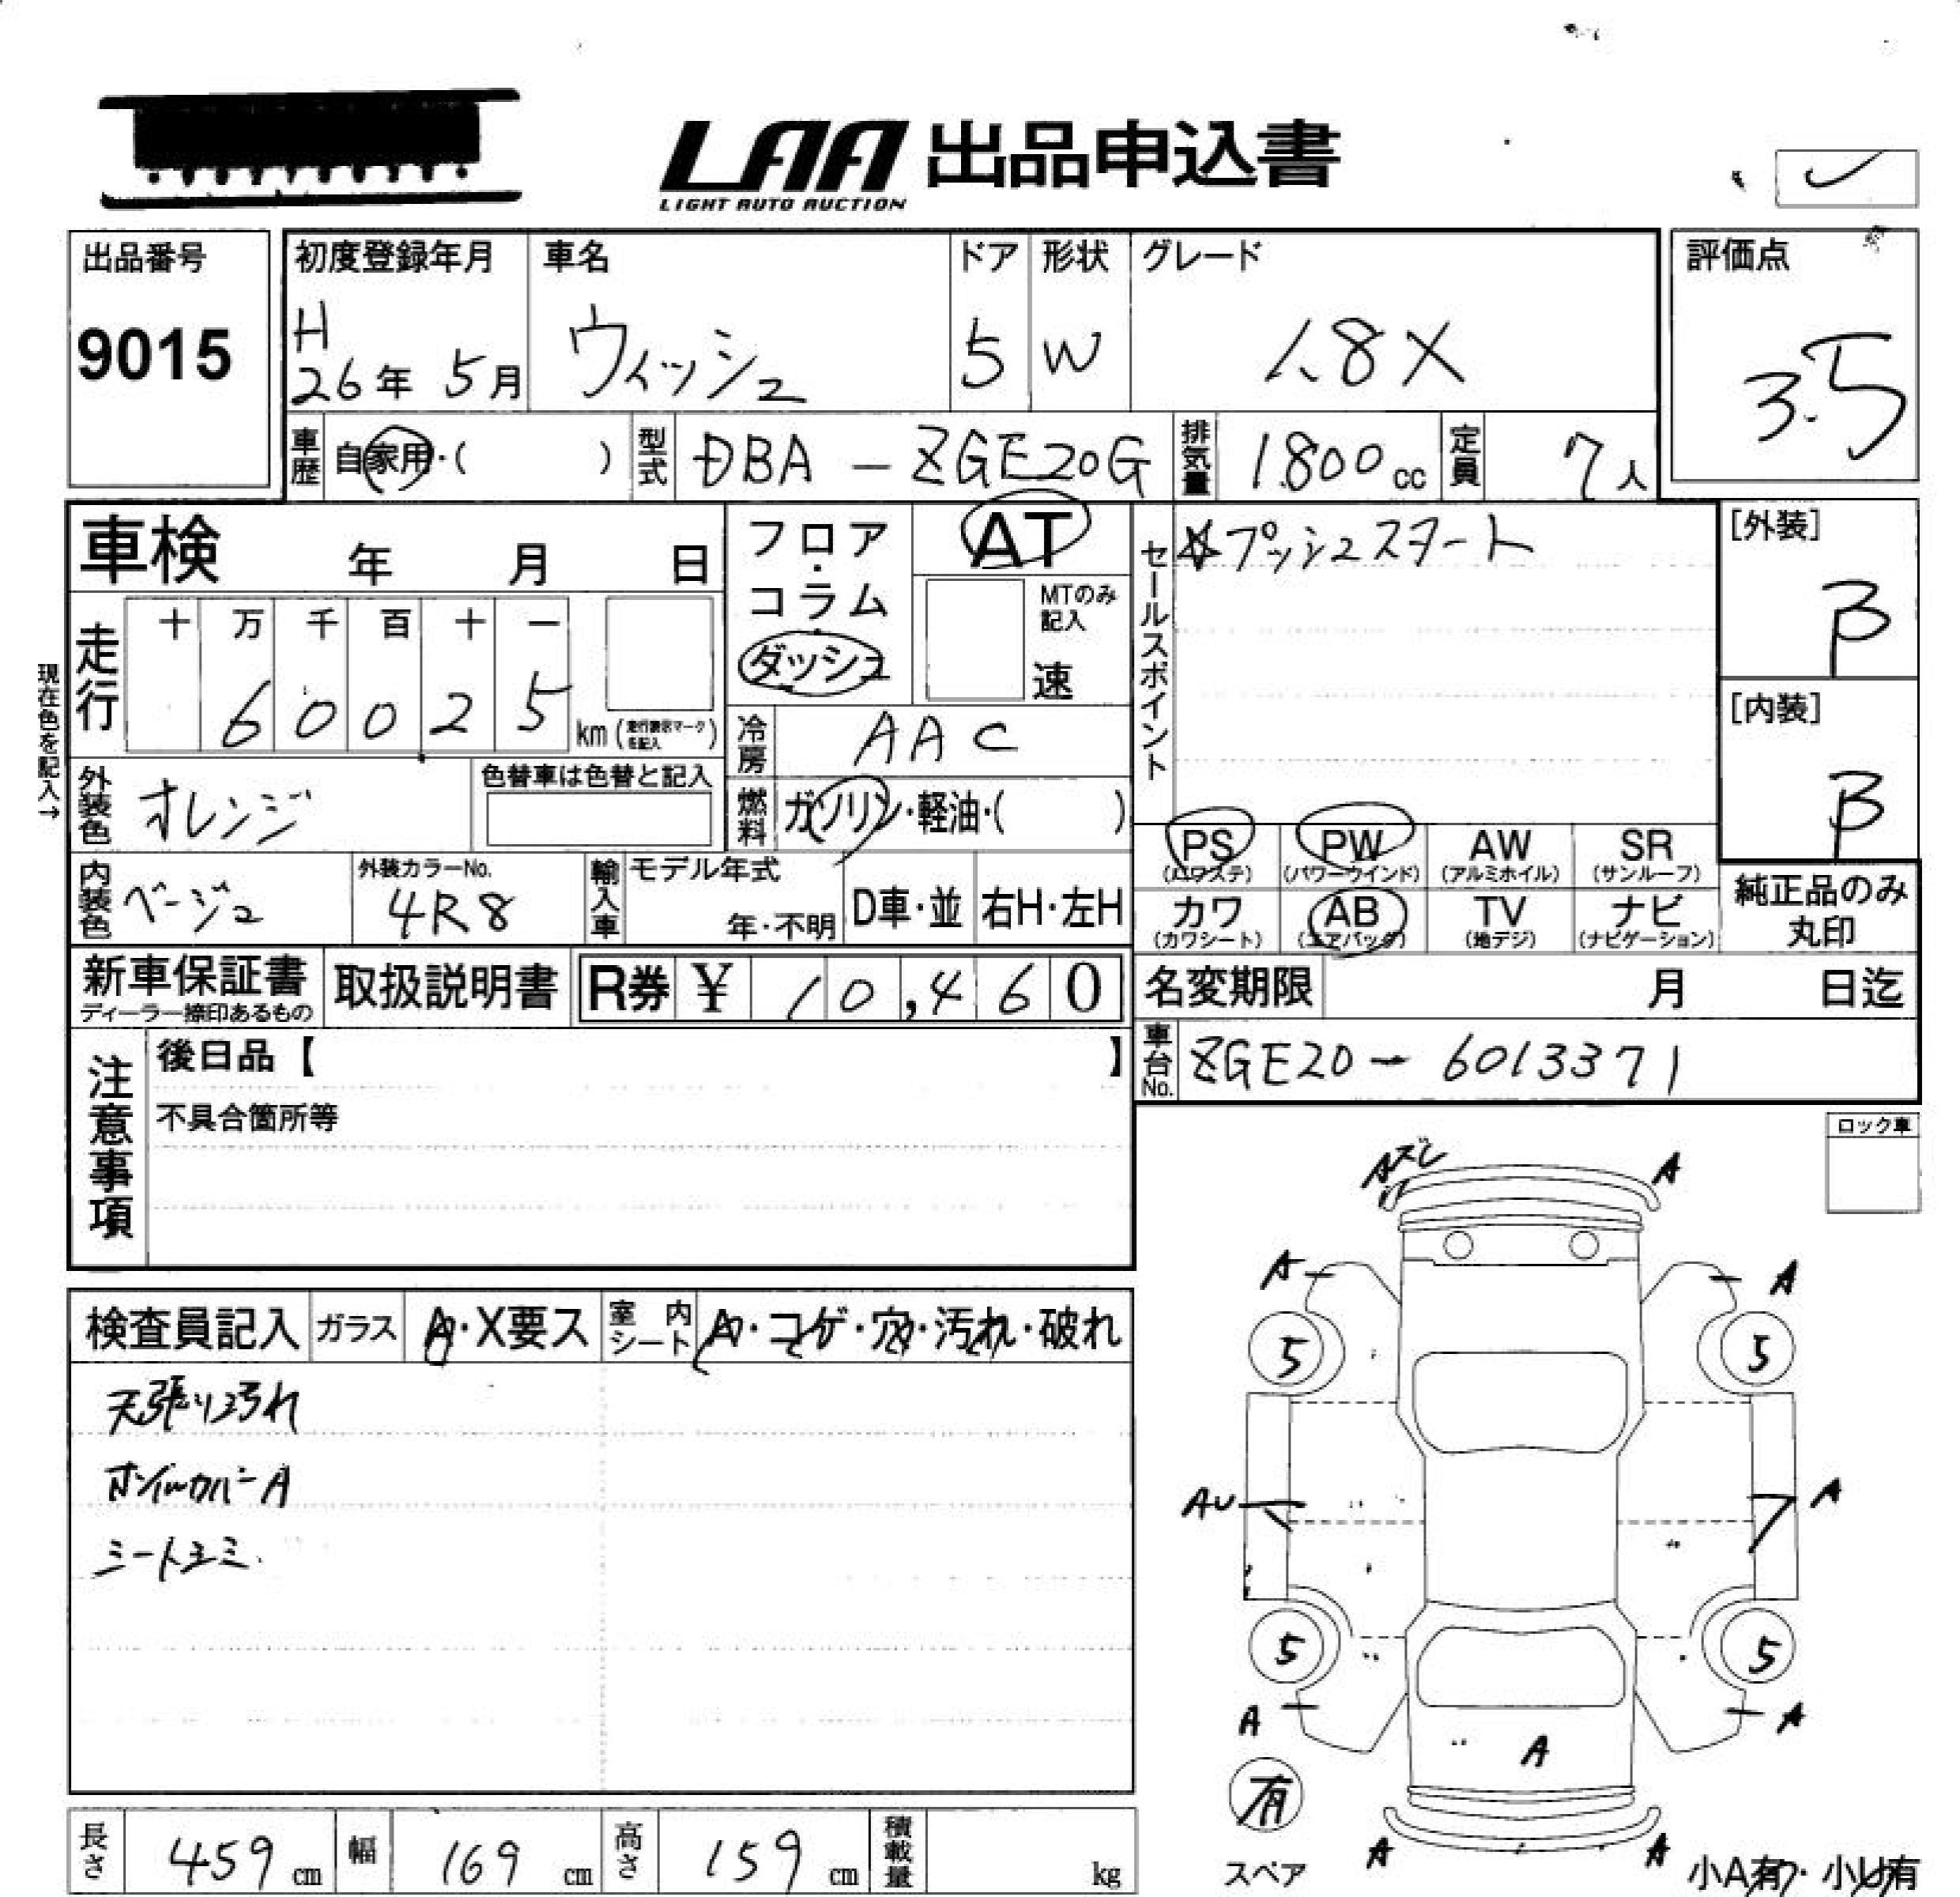 LAA 出品申込書
LIGHT AUTO AUCTION
出品番号
9015
初度登録年月
H
26年 5月
車名
ウィッシュ
ドア
5
形状
W
グレード
1.8X
評価点
3.5
車歴 自家用・( )
型式 DBA-ZGE20G
排気量 1800cc
定員 7人
車検 年 月 日
フロア・コラム・ダッシュ
AT
MTのみ記入
速
セールスポイント
☆プッシュスタート
[外装]
B
[内装]
B
現在色を記入→
走行
十 万 千 百 十 一
6 0 0 2 5 km
冷房 AAC
燃料 ガソリン・軽油・( )
外装色 オレンジ
色替車は色替と記入
内装色 ベージュ
外装カラーNo.
4R8
輸入車
モデル年式
年・不明
D車・並
右H・左H
PS (パワステ)
PW (パワーウインド)
AW (アルミホイル)
SR (サンルーフ)
カワ (カワシート)
AB (エアバッグ)
TV (地デジ)
ナビ (ナビゲーション)
純正品のみ丸印
新車保証書
ディーラー捺印あるもの
取扱説明書
R券 ¥ 10,460
名変期限 月 日迄
車台No. ZGE20-6013371
注意事項
後日品【 】
不具合箇所等
ロック車
検査員記入
ガラス A・X要ス
室内シート A・コゲ・穴・汚れ・破れ
天張り汚れ
ホイールカバーA
シートシミ
A A
A A
5 5
AU A
5 5
A A
A
有
スペア
A A
小A有・小U有
長さ 459cm
幅 169cm
高さ 159cm
積載量 kg